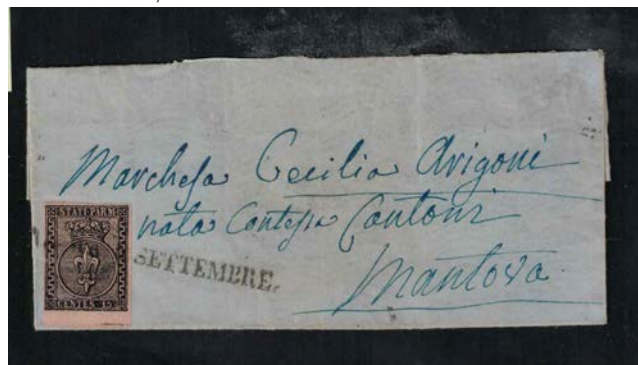 Marchesa Cecilia Arigoni
nata Contessa Cantoni
Mantova
STATI PARM
CENTES. 15
SETTEMBRE.